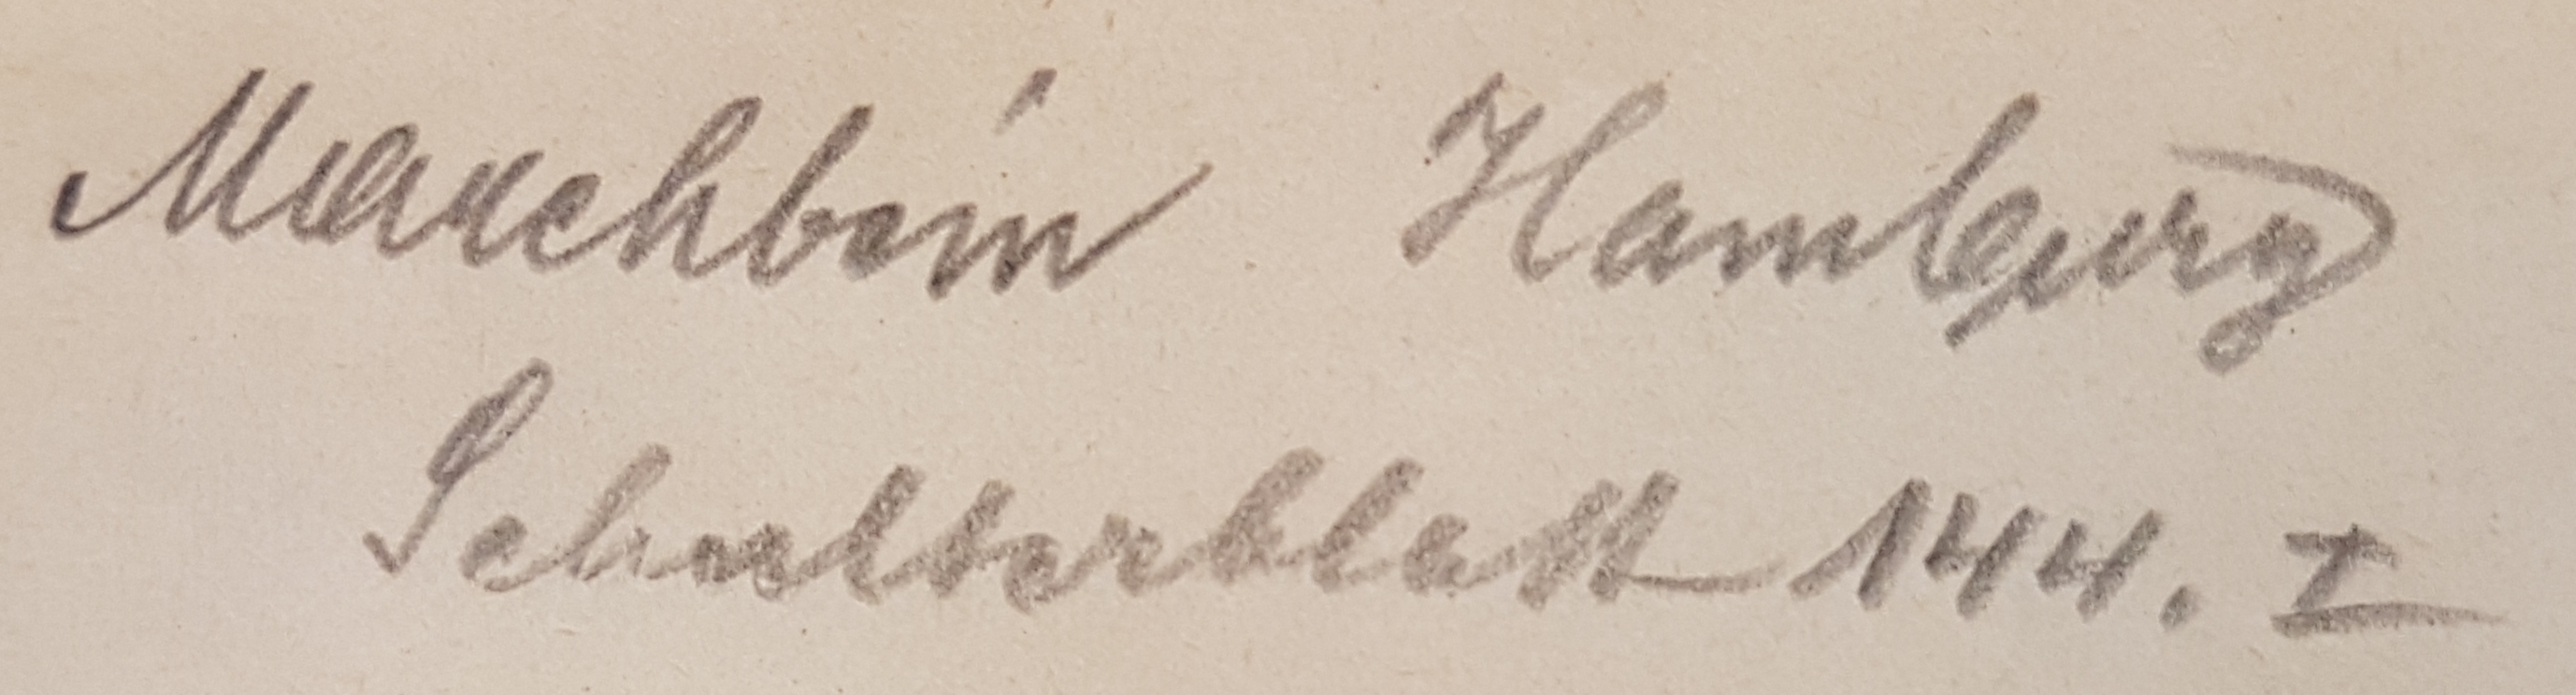 Marchbein Hamburg
Schulterblatt 144. I